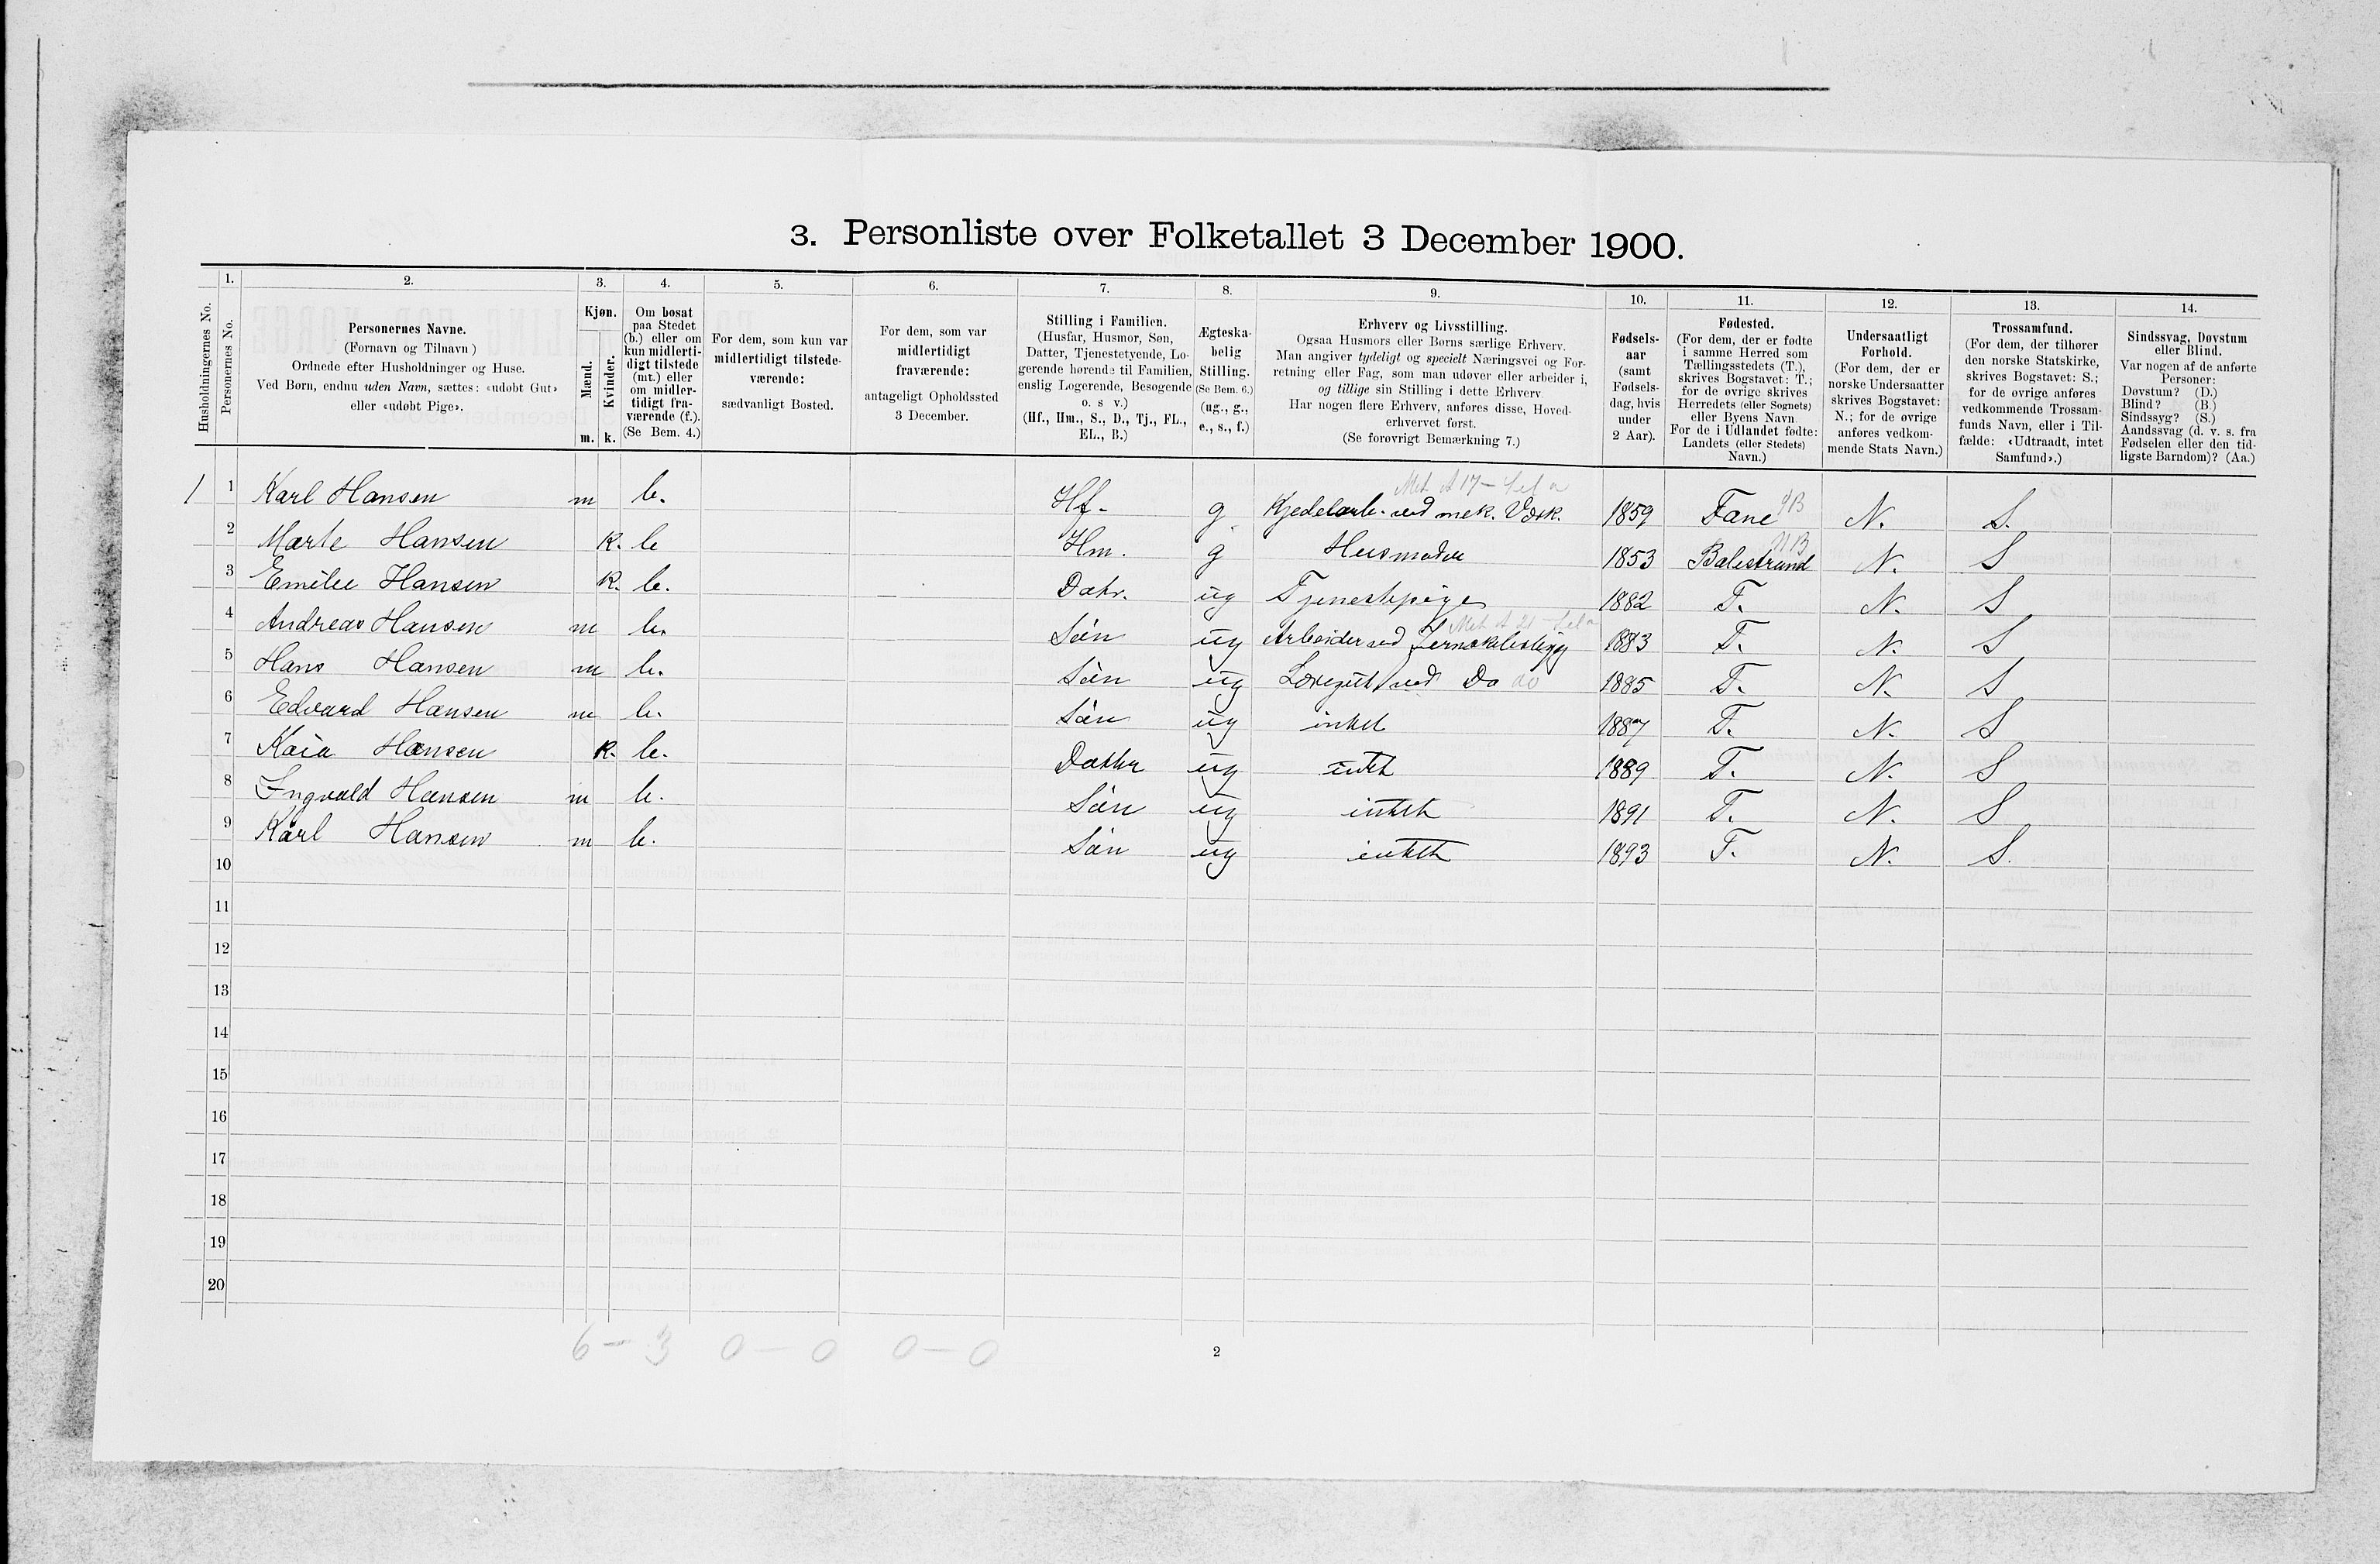 3. Personliste over Folketallet 3 December 1900.
Husholdningernes No.
1.
Personernes No.
2.
Personernes Navne.
(Fornavn og Tilnavn)
Ordnede efter Husholdninger og Huse.
Ved Børn, endnu uden Navn, sættes: «udøbt Gut»
eller «udøbt Pige».
3.
Kjøn.
Mænd.
Kvinder.
m. k.
4.
Om bosat
paa Stedet
(b.) eller om
kun midlerti-
digt tilstede
(mt.) eller
om midler-
tidigt fra-
værende (f.).
(Se Bem. 4.)
5.
For dem, som kun var
midlertidigt tilstede-
værende:
sædvanligt Bosted.
6.
For dem, som var
midlertidigt
fraværende:
antageligt Opholdssted
3 December.
7.
Stilling i Familien.
(Husfar, Husmor, Søn,
Datter, Tjenestetyende, Lo-
gerende hørende til Familien,
enslig Logerende, Besøgende
o. s v.)
(Hf., Hm., S., D., Tj., FL.,
EL., B.)
8.
Ægteska-
belig
Stilling.
(Se Bem. 6.)
(ug., g.,
e., s., f.)
9.
Erhverv og Livsstilling.
Ogsaa Husmors eller Børns særlige Erhverv.
Man angiver tydeligt og specielt Næringsvei og For-
retning eller Fag, som man udøver eller arbeider i,
og tillige sin Stilling i dette Erhverv.
Har nogen flere Erhverv, anføres disse, Hoved-
erhvervet først.
(Se forøvrigt Bemærkning 7.)
10.
Fødsels-
aar
(samt
Fødsels-
dag, hvis
under
2 Aar).
11.
Fødested.
(For dem, der er fødte
i samme Herred som
Tællingsstedets (T.),
skrives Bogstavet: T.;
for de øvrige skrives
Herredets (eller Sognets)
eller Byens Navn.
For de i Udlandet fødte:
Landets (eller Stedets)
Navn.)
12.
Undersaatligt
Forhold.
(For dem, der er
norske Undersaatter
skrives Bogstavet:
N.; for de øvrige
anføres vedkom-
mende Stats Navn.)
13.
Trossamfund.
(For dem, der tilhører
den norske Statskirke,
skrives Bogstavet: S.;
for de øvrige anføres
vedkommende Trossam-
funds Navn, eller i Til-
fælde: «Udtraadt, intet
Samfund».)
14.
Sindssvag, Døvstum
eller Blind.
Var nogen af de anførte
Personer:
Døvstum? (D.)
Blind? (B.)
Sindssyg? (S.)
Aandssvag (d. v. s. fra
Fødselen eller den tid-
ligste Barndom)? (Aa.)
1 1 Karl Hansen m b. Hf. g Kjedelarb. ved mek. Værk. 1859 Fane N. S.
2 Marte Hansen K. b Hm. g Husmoder 1853 Balestrand N. S
3 Emilie Hansen K. b. Datr. ug Tjenestepige 1882 T. N. S
4 Andreas Hansen m b. Sön ug Arbeider ved 1883 T. N. S
5 Hans Hansen m b. Sön ug ved Do do 1885 T. N. S
6 Edvard Hansen m b. Sön ug intet 1887 T. N. S
7 Kaia Hansen K. b. Datter ug intet 1889 T. N. S
8 Ingvald Hansen m b. Sön ug intet 1891 T. N. S
9 Karl Hansen m b. Sön ug intet 1893 T. N. S.
10
11
12
13
14
15
16
17
18
19
20
6 — 3 0 — 0 0 — 0
2